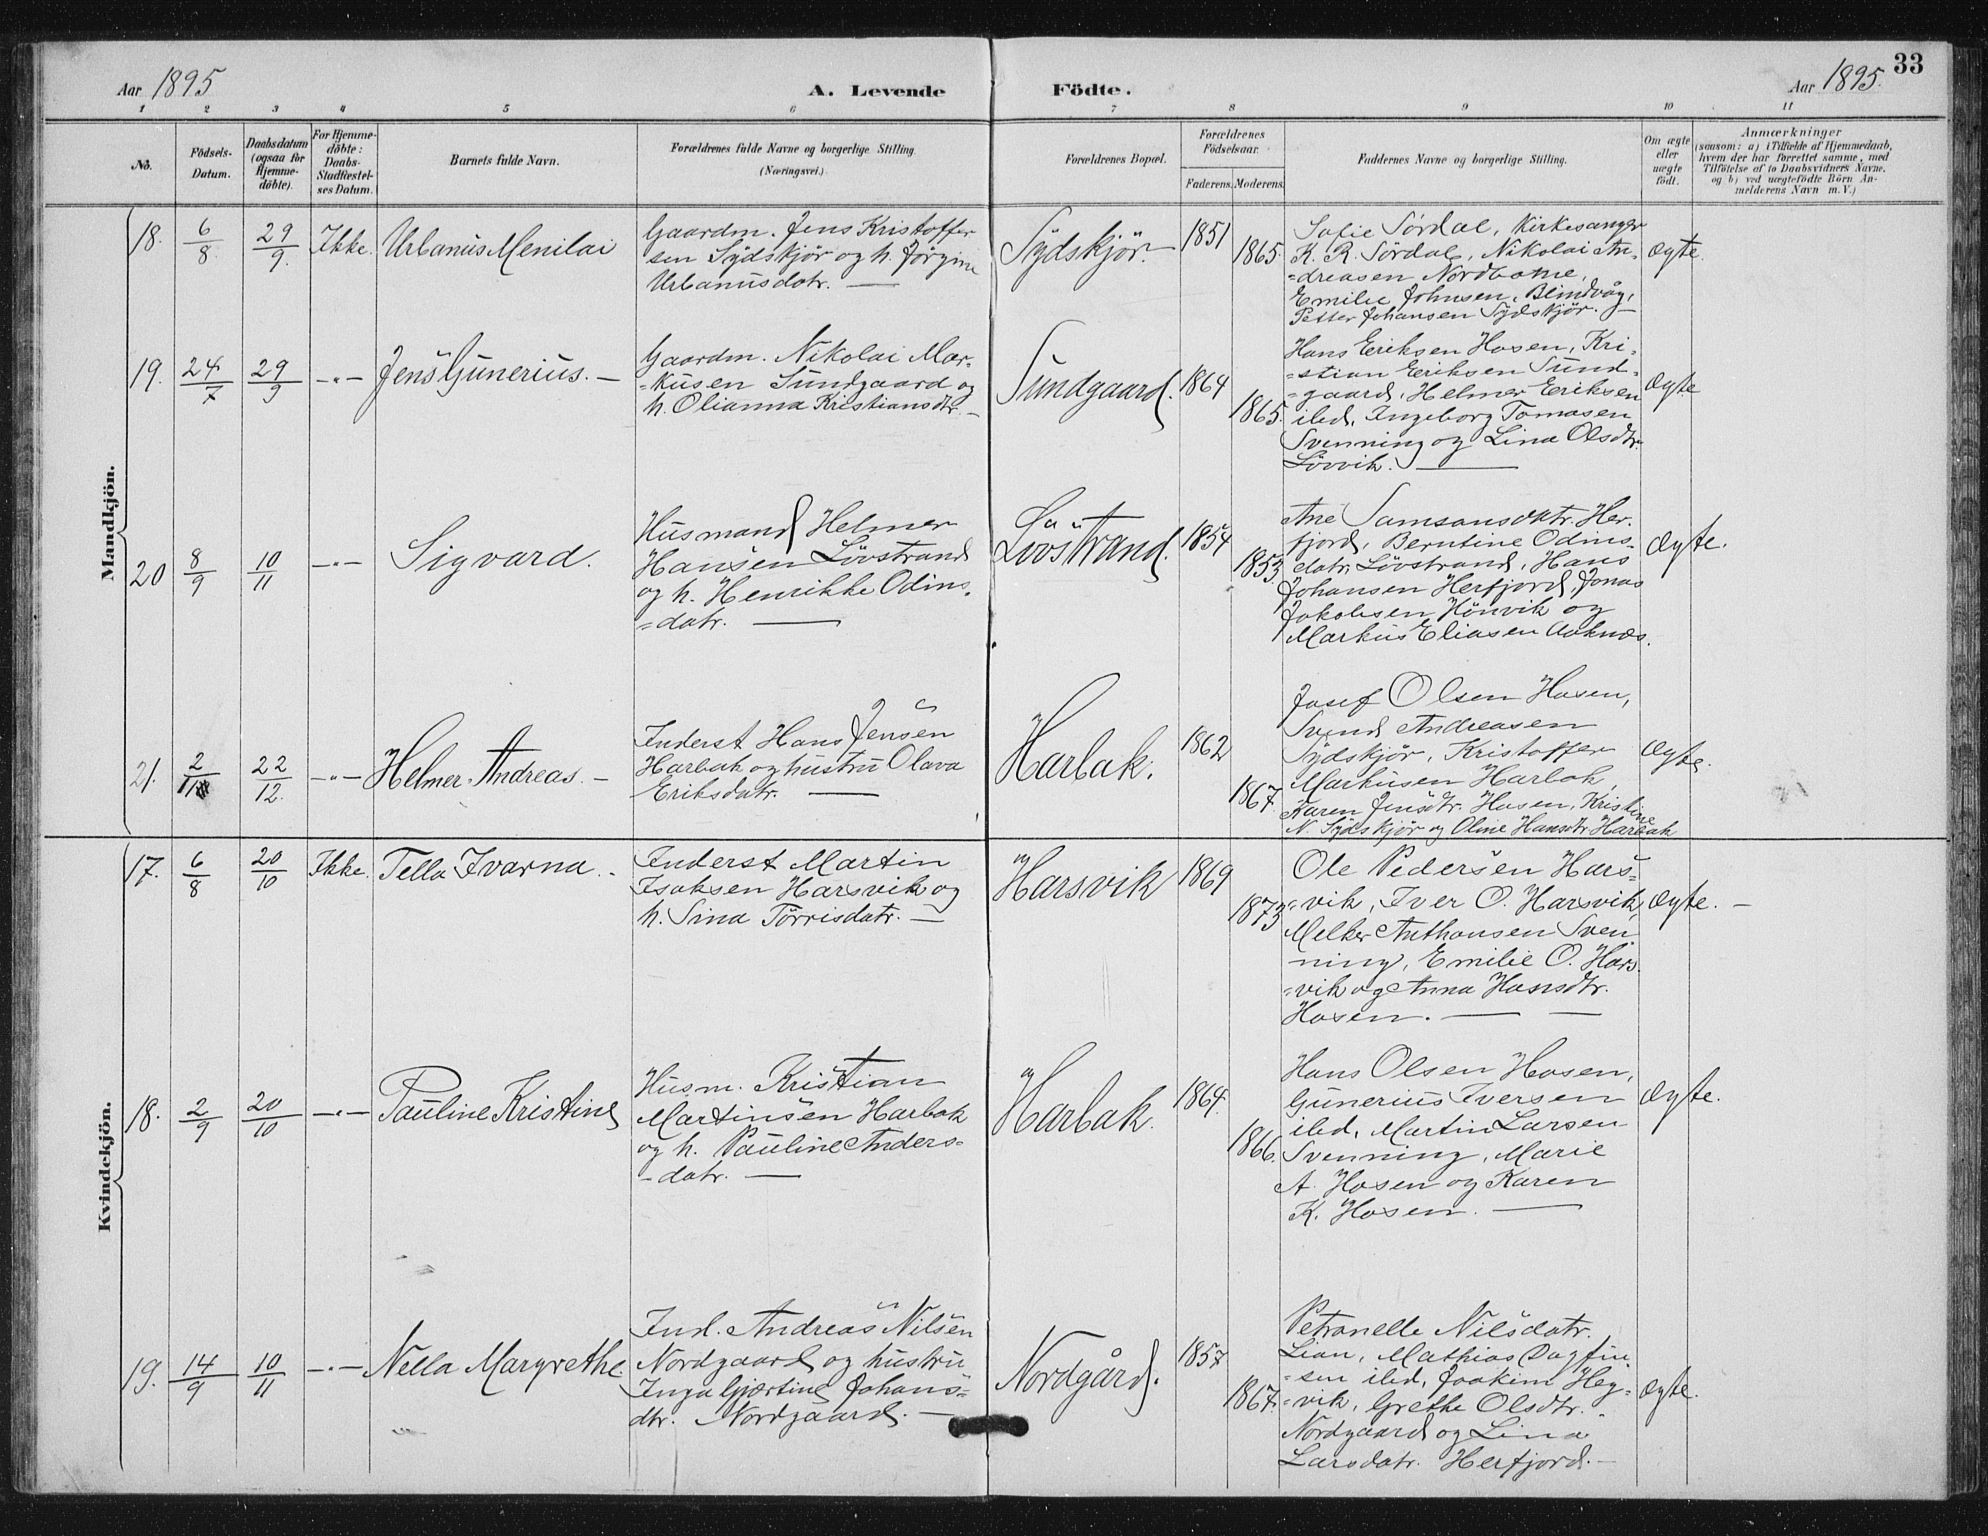 Aar 1895
A. Levende
Födte.
Aar 1895.
33
1 2 3 4 5 6 7 8 9 10 11
No.
Födsels-
Datum.
Daabsdatum
(ogsaa for
Hjemme-
döbte).
For Hjemme-
döbte:
Daabs-
Stadfæstel-
ses Datum.
Barnets fulde Navn.
Forældrenes fulde Navne og borgerlige Stilling.
(Næringsvei.)
Forældrenes Bopæl.
Forældrenes
Födselsaar.
Faderens.
Moderens.
Faddernes Navne og borgerlige Stilling.
Om ægte
eller
uægte
födt.
Anmærkninger
(saasom: a) i Tilfælde af Hjemmedaab,
hvem der har forrettet samme, med
Tilföielse af to Daabsvidners Navne.
og b) ved uægtefödte Börn An-
melderens Navn m. V.)
Mandkjön.
18. 6/8 29/9. Ikke. Urbanus Menilai
Gaardm. Jens Kristoffer
sen Sydskjör og h. Jörgine
Urbanusdatr. —
Sydskjör. 1851 1865.
Sofie Sördal, Kirkesanger
K. R. Sördal, Nikolai An-
=dreasen Nordbotne,
Emilie Johnsen, Blindvåg,
Petter Johansen Sydskjör. —
ægte.
19. 24/7 29/9 —"— Jens Gunerius. —
Gaardm. Nikolai Mar-
=kusen Sundgaard og
h. Olianna Kristiansdtr. —
Sundgaard. 1864 1865.
Hans Eriksen Hasen, Kri-
=stian Eriksen Sund-
=gaard, Helmer Eriksen
ibd, Ingeborg Tomasen
Svenning og Lina Olsdtr.
Lövvik. —
ægte
20 8/9 10/11 —"— Sigvard.
Husmand Helmer
Hansen Lövstrand
og h. Henrikke Odins-
=datr. —
Lövstrand. 1854 1853
Ane Samsonsdatr. Her-
fjord, Berntine Odins-
datr. Lövstrand, Hans
Johansen Herfjord, Jonas
Jakobsen Hönvik og
Markus Eliasen Aaknæs.
ægte.
21. 2/11 22/12. —"— Helmer Andreas. —
Inderst Hans Jensen
Harbak og hustru Olava
Eriksdatr. —
Harbak. 1862 1867
Josef Olsen Hasen,
Svend Andreasen
Sydskjör, Kristoffer
Markusen Harbak,
Karen Jensdtr. Hasen, Kristine
N. Sydskjör og Oline Hansdtr Harbak
ægte.
Kvindekjön.
17. 6/8 20/10 Ikke. Tella Ivarna. —
Inderst Martin
Isaksen Harsvik og
h. Sina Törrisdatr. —
Harsvik 1869 1873
Ole Pedersen Hars-
=vik, Iver O. Harsvik,
Melker Anthonsen Sven
ning, Emilie O. Hars-
=vik og Anna Hansdtr.
Hasen. — —
ægte. —
18. 2/9 20/10 —"— Pauline Kristine
Husm. Kristian
Martinsen Harbak
og h. Pauline Anders-
-datr. —
Harbak. 1864. 1866.
Hans Olsen Hasen,
Gunerius Iversen
ibd, Martin Larsen
Svenning, Marie
A. Hasen og Karen
K. Hasen. —
ægte.
19. 14/9 10/11 —"— Nella Margrethe.
Ind. Andreas Nilsen
Nordgaard og hustru
Inga Gjærtine Johans-
dtr. Nordgaard. —
Nordgård. 1857 1867.
Petronelle Nilsdatr.
Lian, Mathias Dagfin-
=sen ibd, Joakim Heg-
=vik, Grethe Olsdtr.
Nordgaard og Lina
Larsdatr. Herfjord. —
ægte.